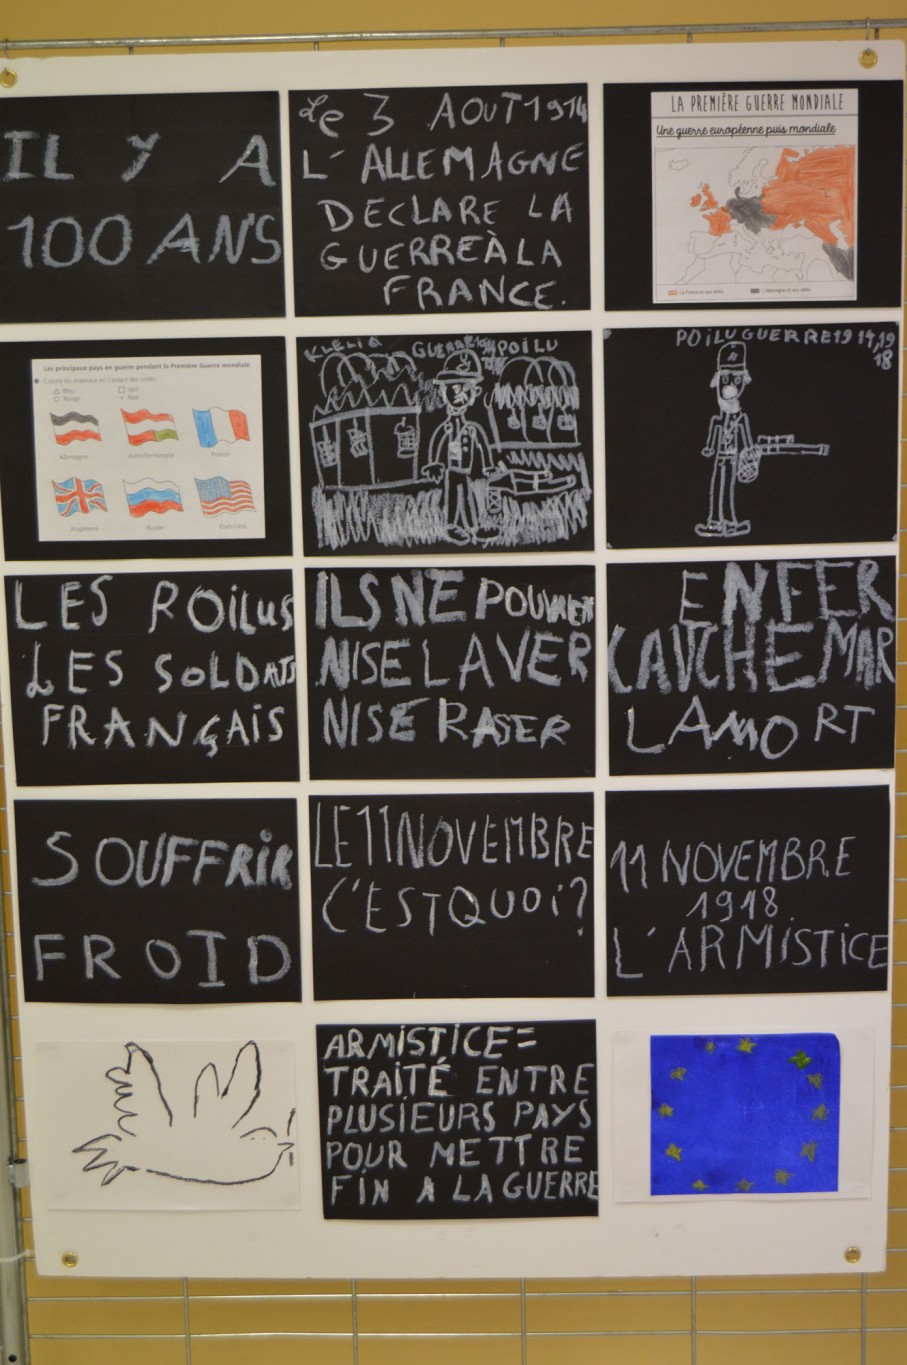 IL Y A
100 ANS
Le 3 AOUT 1914
L'ALLEMAGNE
DECLARE LA
GUERRE À LA
FRANCE.
LA PREMIÈRE GUERRE MONDIALE
Une guerre européenne puis mondiale
La France et ses alliés
L'Allemagne et ses alliés
Les principaux pays en guerre pendant la Première Guerre mondiale
Colorie les drapeaux en t'aidant des codes.
Bleu
Vert
Rouge
Noir
Allemagne
Autriche-Hongrie
France
Angleterre
Russie
Etats-Unis
KLELIA
POILU
POILU GUERRE 1914, 19
18
LES POILUS
LES SOLDATS
FRANÇAIS
ILS NE POUVAIENT
NI SE LAVER
NI SE RASER
ENFER
CAUCHEMAR
LA MORT
SOUFFRIR
FROID
LE 11 NOVEMBRE
C'EST QUOI?
11 NOVEMBRE
1918
L'ARMISTICE
ARMISTICE=
TRAITÉ ENTRE
PLUSIEURS PAYS
POUR METTRE
FIN A LA GUERRE